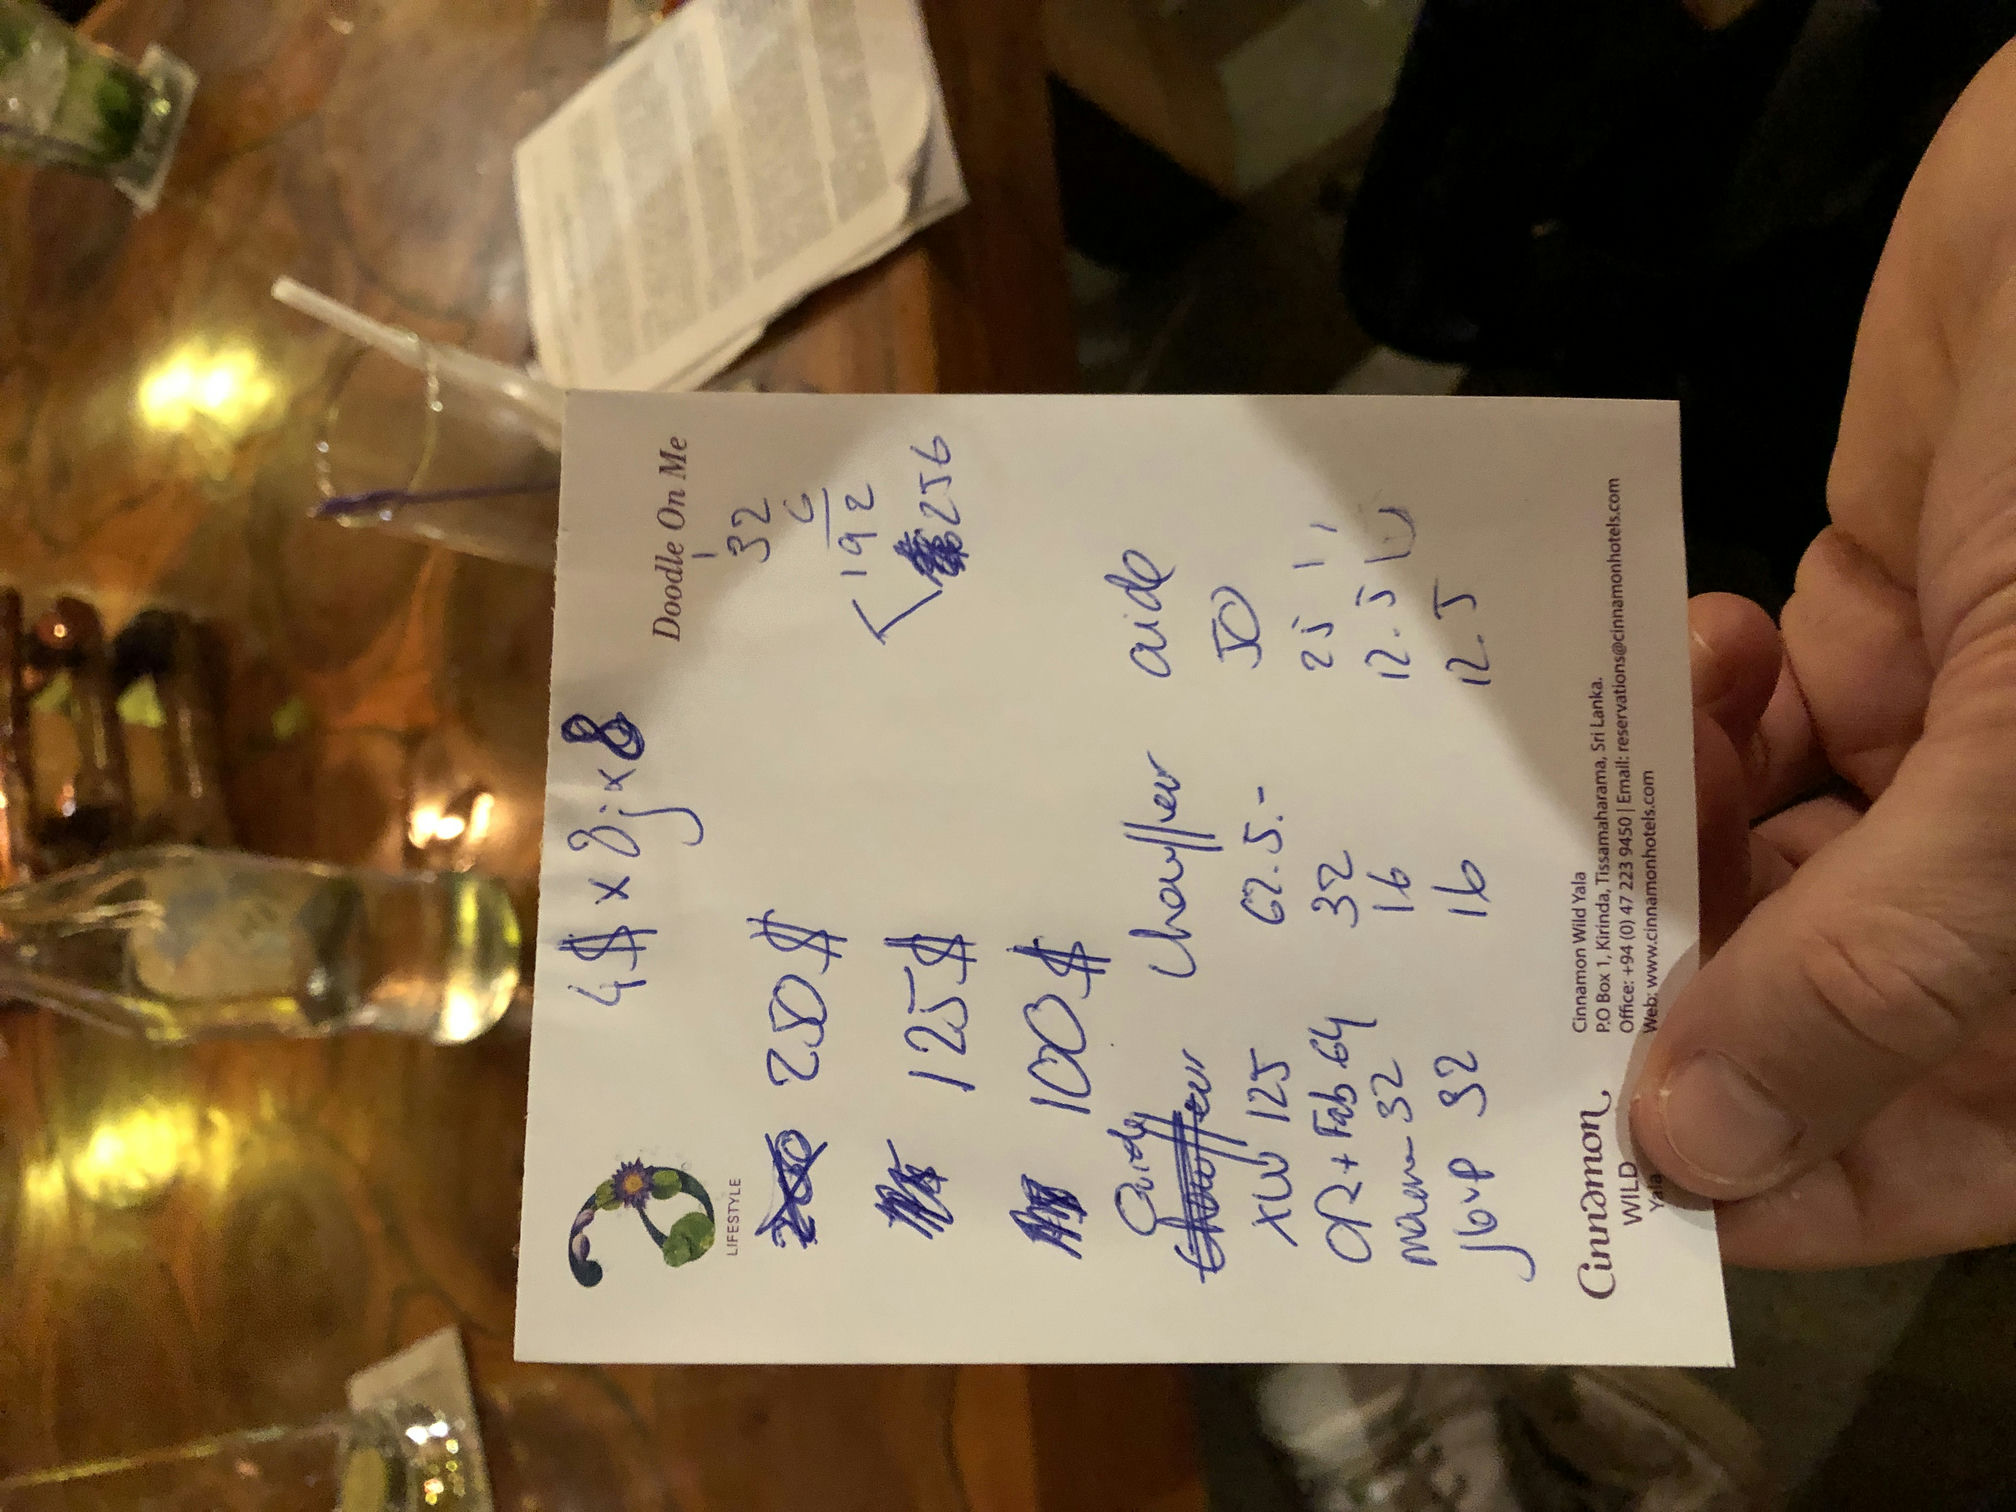 4$ x 8j x 8
LIFESTYLE
Doodle On Me
32
6
192
256
250$
125$
100$
Guide Chauffeur aide
XW 125 62.5.- 50
OR + Fab 64 32 25
maman 32 16 12.5
JGVP 32 16 12.5
Cinnamon
WILD
Yala
Cinnamon Wild Yala
P.O Box 1, Kirinda, Tissamaharama, Sri Lanka.
Office: +94 (0) 47 223 9450 | Email: reservations@cinnamonhotels.com
Web: www.cinnamonhotels.com